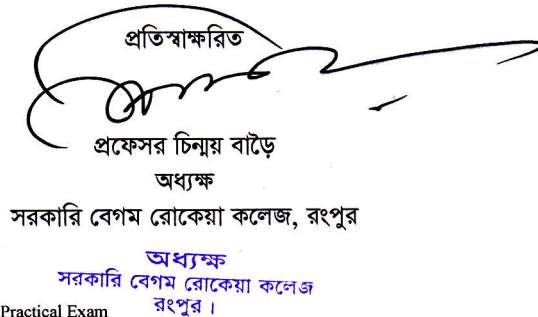 প্রতিস্বাক্ষরিত
প্রফেসর চিন্ময় বাড়ৈ
অধ্যক্ষ
সরকারি বেগম রোকেয়া কলেজ, রংপুর
অধ্যক্ষ
সরকারি বেগম রোকেয়া কলেজ
রংপুর।
Practical Exam